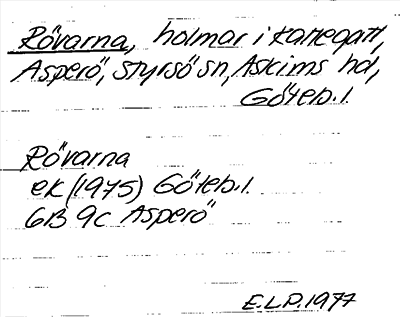 Rövarna, holmar i Kattegatt,
Asperö, Styrsö sn, Askims hd,
Göteb. l.
Rövarna
ek (1975) Göteb. l.
6B 9c Asperö
E.L.P. 1977